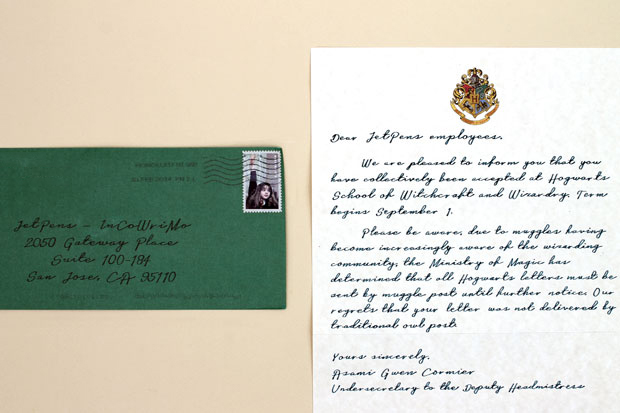 JetPens - InCoWriMo
2050 Gateway Place
Suite 100-194
San Jose, CA 95110
Dear JetPens employees,
We are pleased to inform you that you
have collectively been accepted at Hogwarts
School of Witchcraft and Wizardry. Term
begins September 1.
Please be aware, due to muggles having
become increasingly aware of the wizarding
community, the Ministry of Magic has
determined that all Hogwarts letters must be
sent by muggle post until further notice. Our
regrets that your letter was not delivered by
traditional owl post.
Yours sincerely,
Asami Gwen Cormier
Undersecretary to the Deputy Headmistress